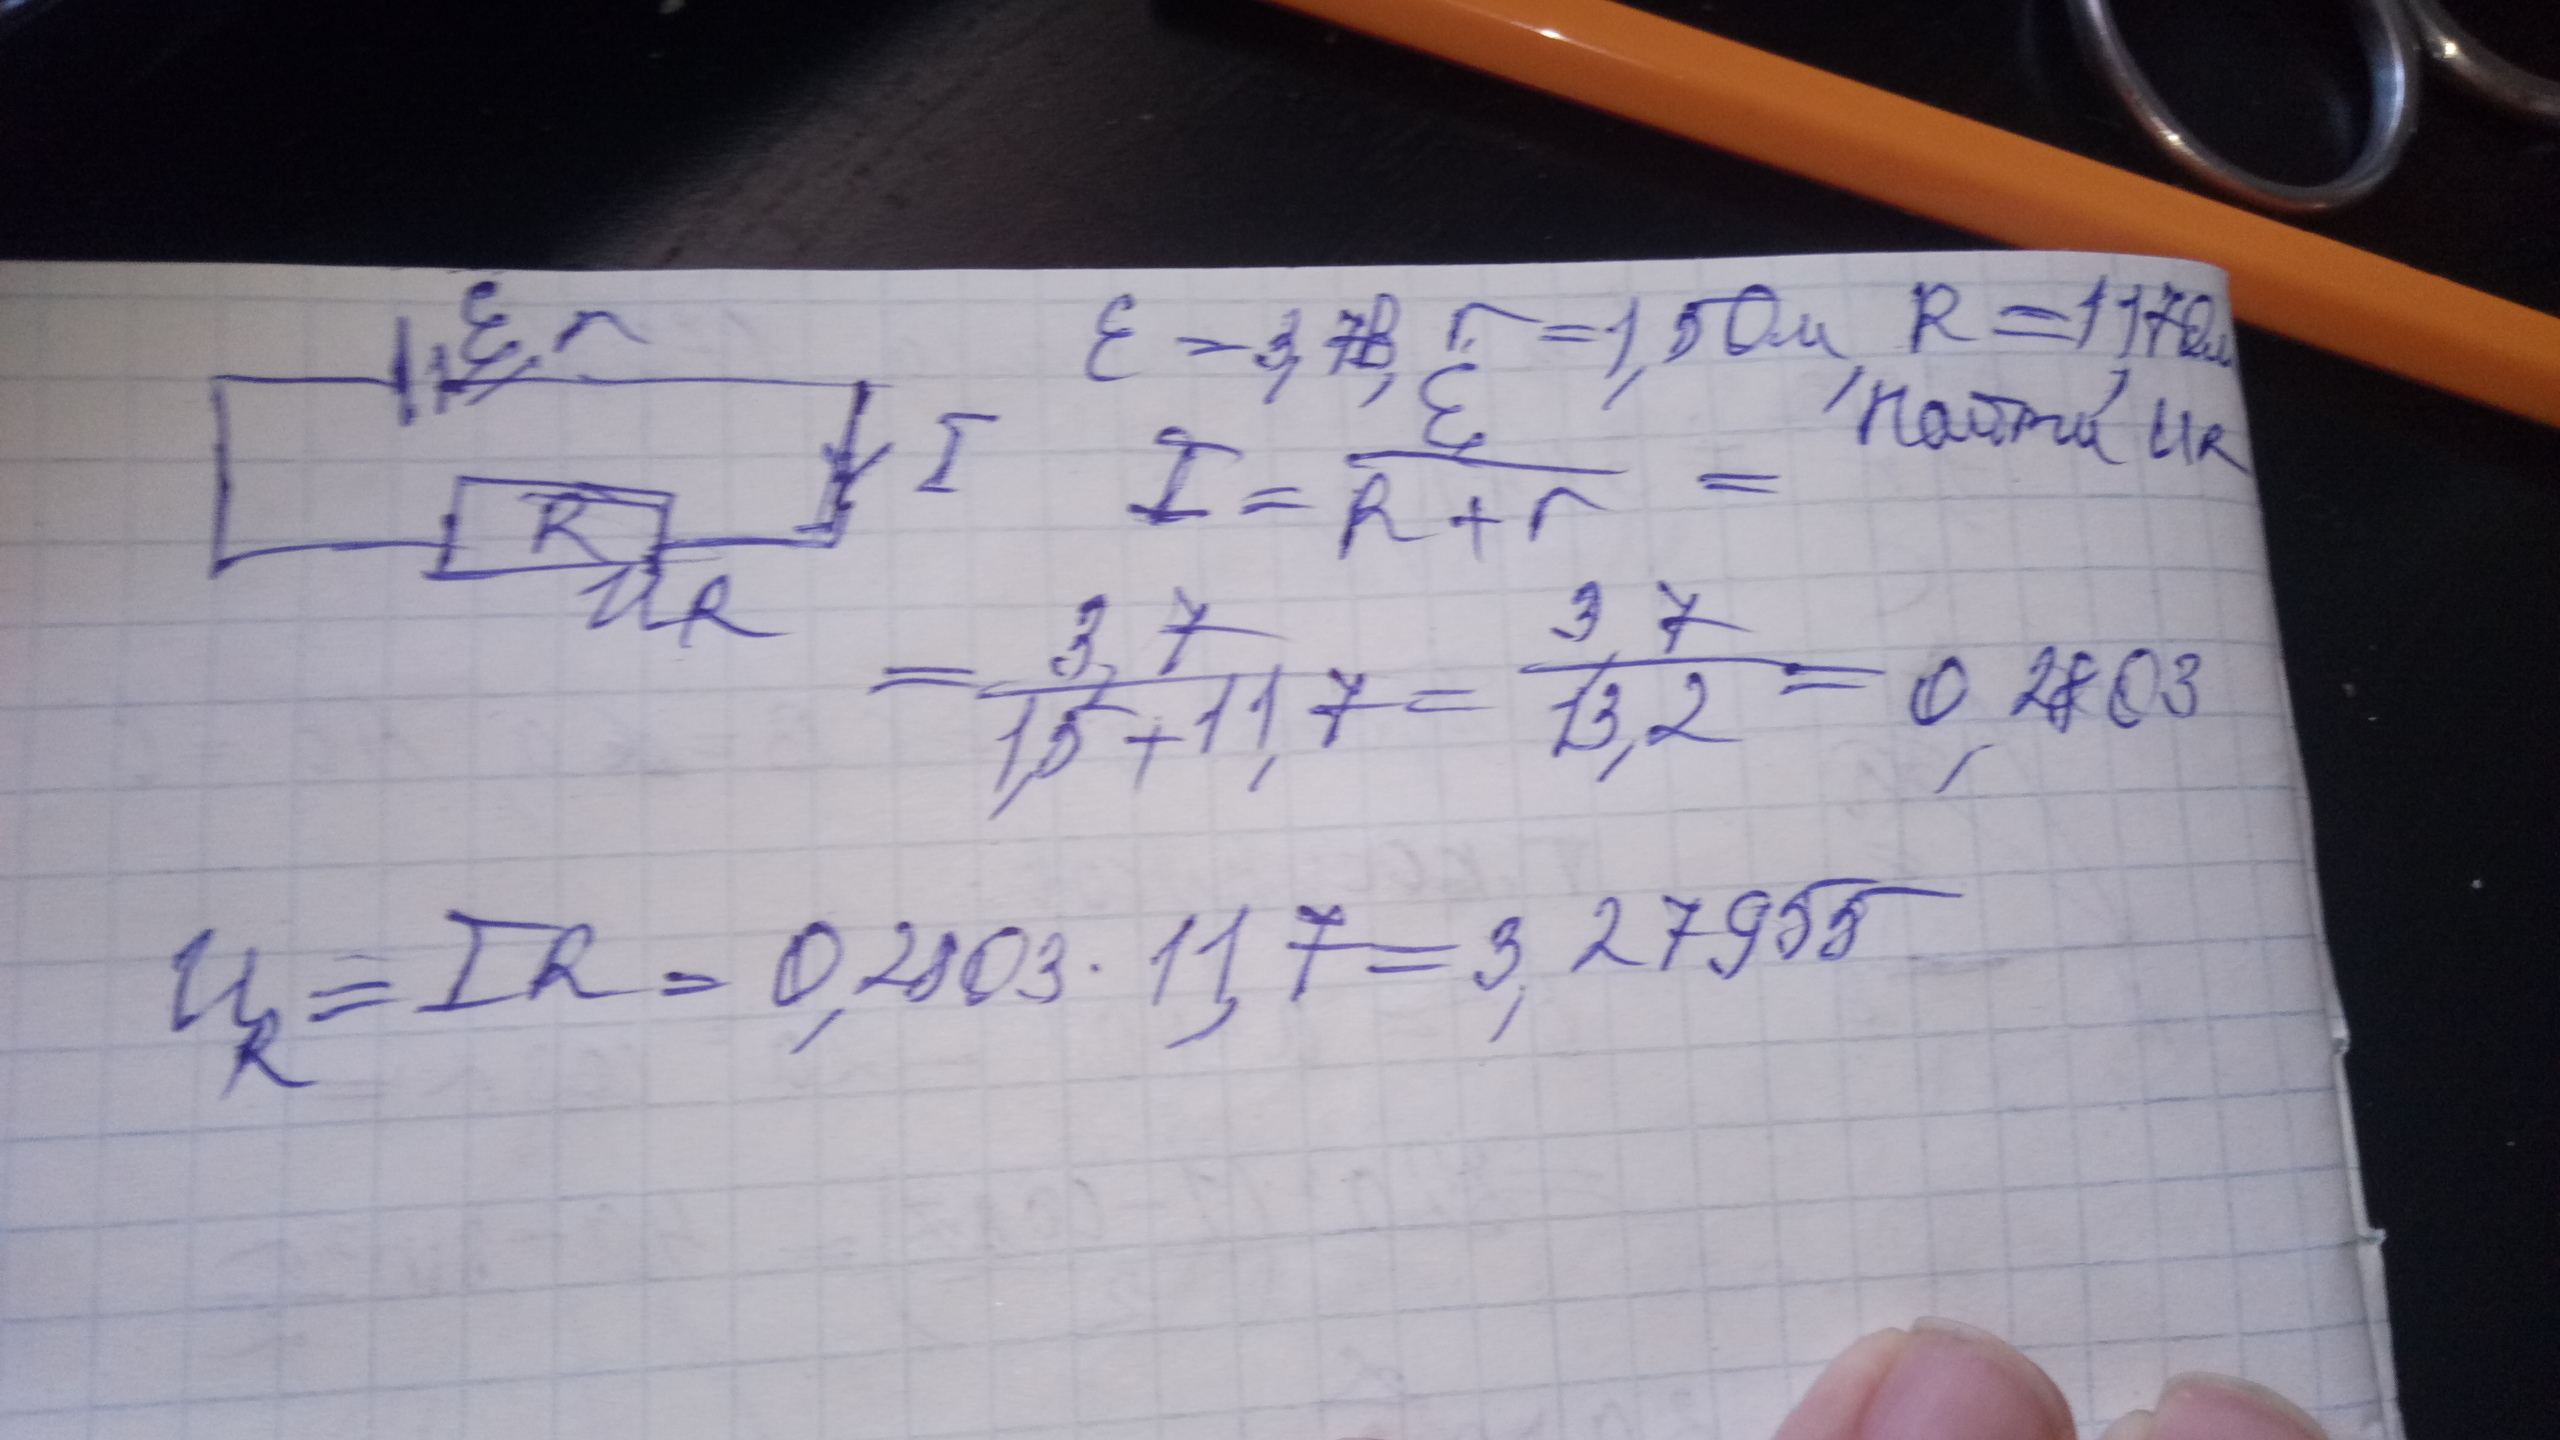 Ɛ, r
Ɛ = 3,7В, r = 1,5Ом, R = 11,7Ом,
найти U_R
I
R
U_R
I = Ɛ / (R + r) =
= 3,7 / (1,5 + 11,7) = 3,7 / 13,2 = 0,2803
U_R = IR = 0,2803 · 11,7 = 3,27955